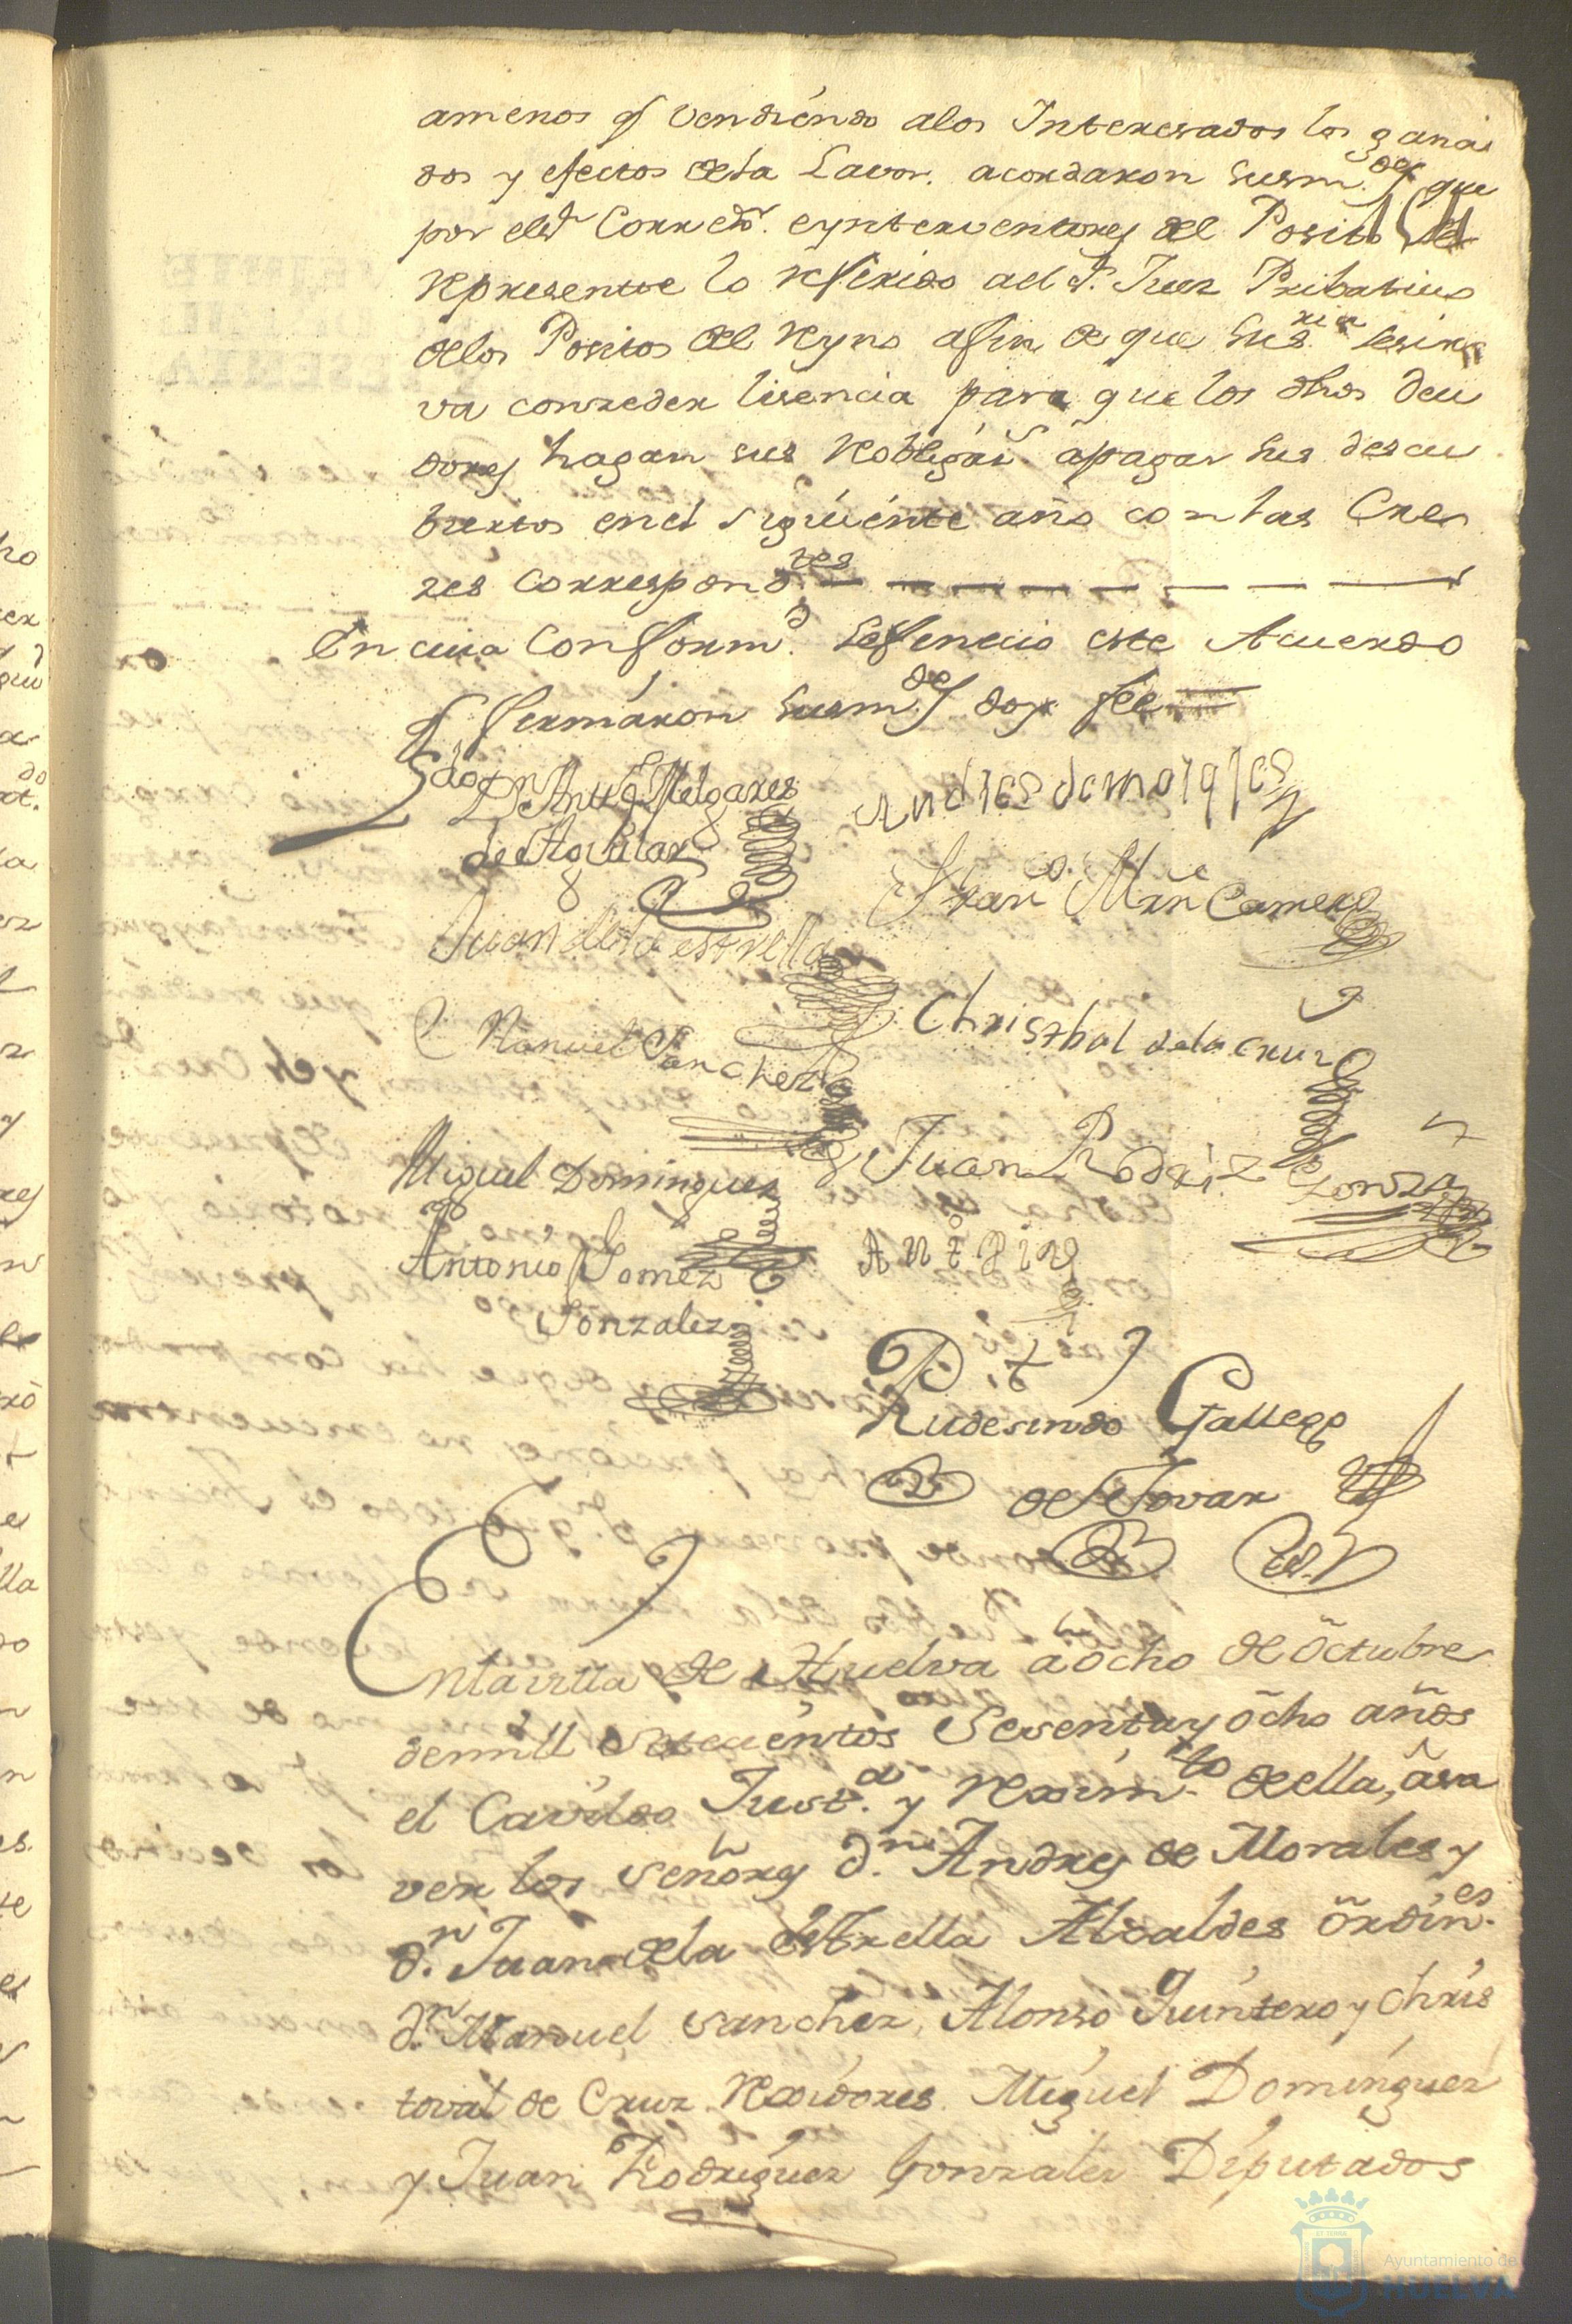 amenos q̃ vendiéndo alos Interesados los gana
dos y efectos dela Lavor. acordaron susm.des que
por el sr. Corredr. eynterventores del Posito se
represente lo referido al sr. Juez Pribativo
delos Positos del Reyno afin de que sesir
va conzeder lisencia para que los dhos deu
dores hagan sus apagar sus descu
biertos enel siguiénte año con las Cre
zes correspond.tes
En cuia Conform.d. sefenecio este Acuerdo
q̃ firmáron susm.des doy fee
Ldo. Dn. Antto. Melgarejo
de Aguilar
Andres de morales
Fran.co Mrn Camero
Juan de la estrella
Manuel Sanchez
Christhal dela cruz
Miguel Dominguez
Juan Rodriz Gonza
Antonio Gomez
Gonzalez
Rudesindo Gallego
de Tovar
Enla villa de Huelva a õcho de õctubre
demill setecientos Sesenta y õcho años
el Cavildo Just.a y Rexim.to de ella, ãsa
ver los señores dn. Andres de Morales y
dn. Juan dela estrella Alcaldes õrdin.es
dn. Manuel sanchez, Alonso Quintero y Chris
toval de Cruz Rexidores. Miguel Dominguez
y Juan Rodriguez Gonzalez Diputados
Ayuntamiento de
HUELVA